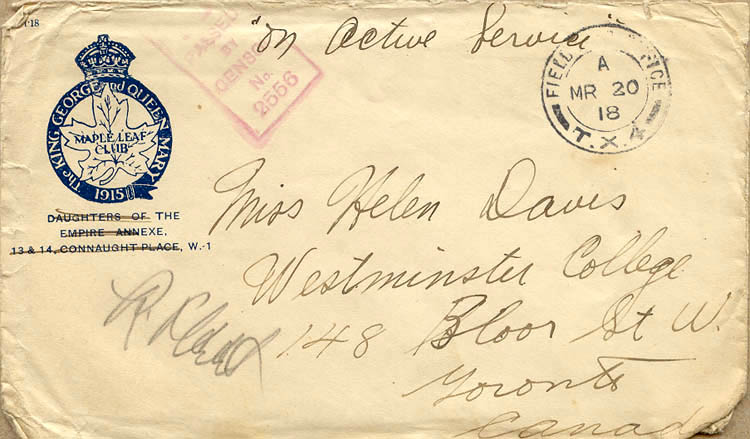 "on Active Service"
PASSED
BY
CENSOR
No.
2556
FIELD POST OFFICE
A
MR 20
18
T.X.4
The KING GEORGE and QUEEN MARY
MAPLE LEAF
CLUB
1915
DAUGHTERS OF THE
EMPIRE ANNEXE,
13 & 14, CONNAUGHT PLACE, W.-1
Miss Helen Davis
Westminster College
148 Bloor St W.
Toronto
Canada